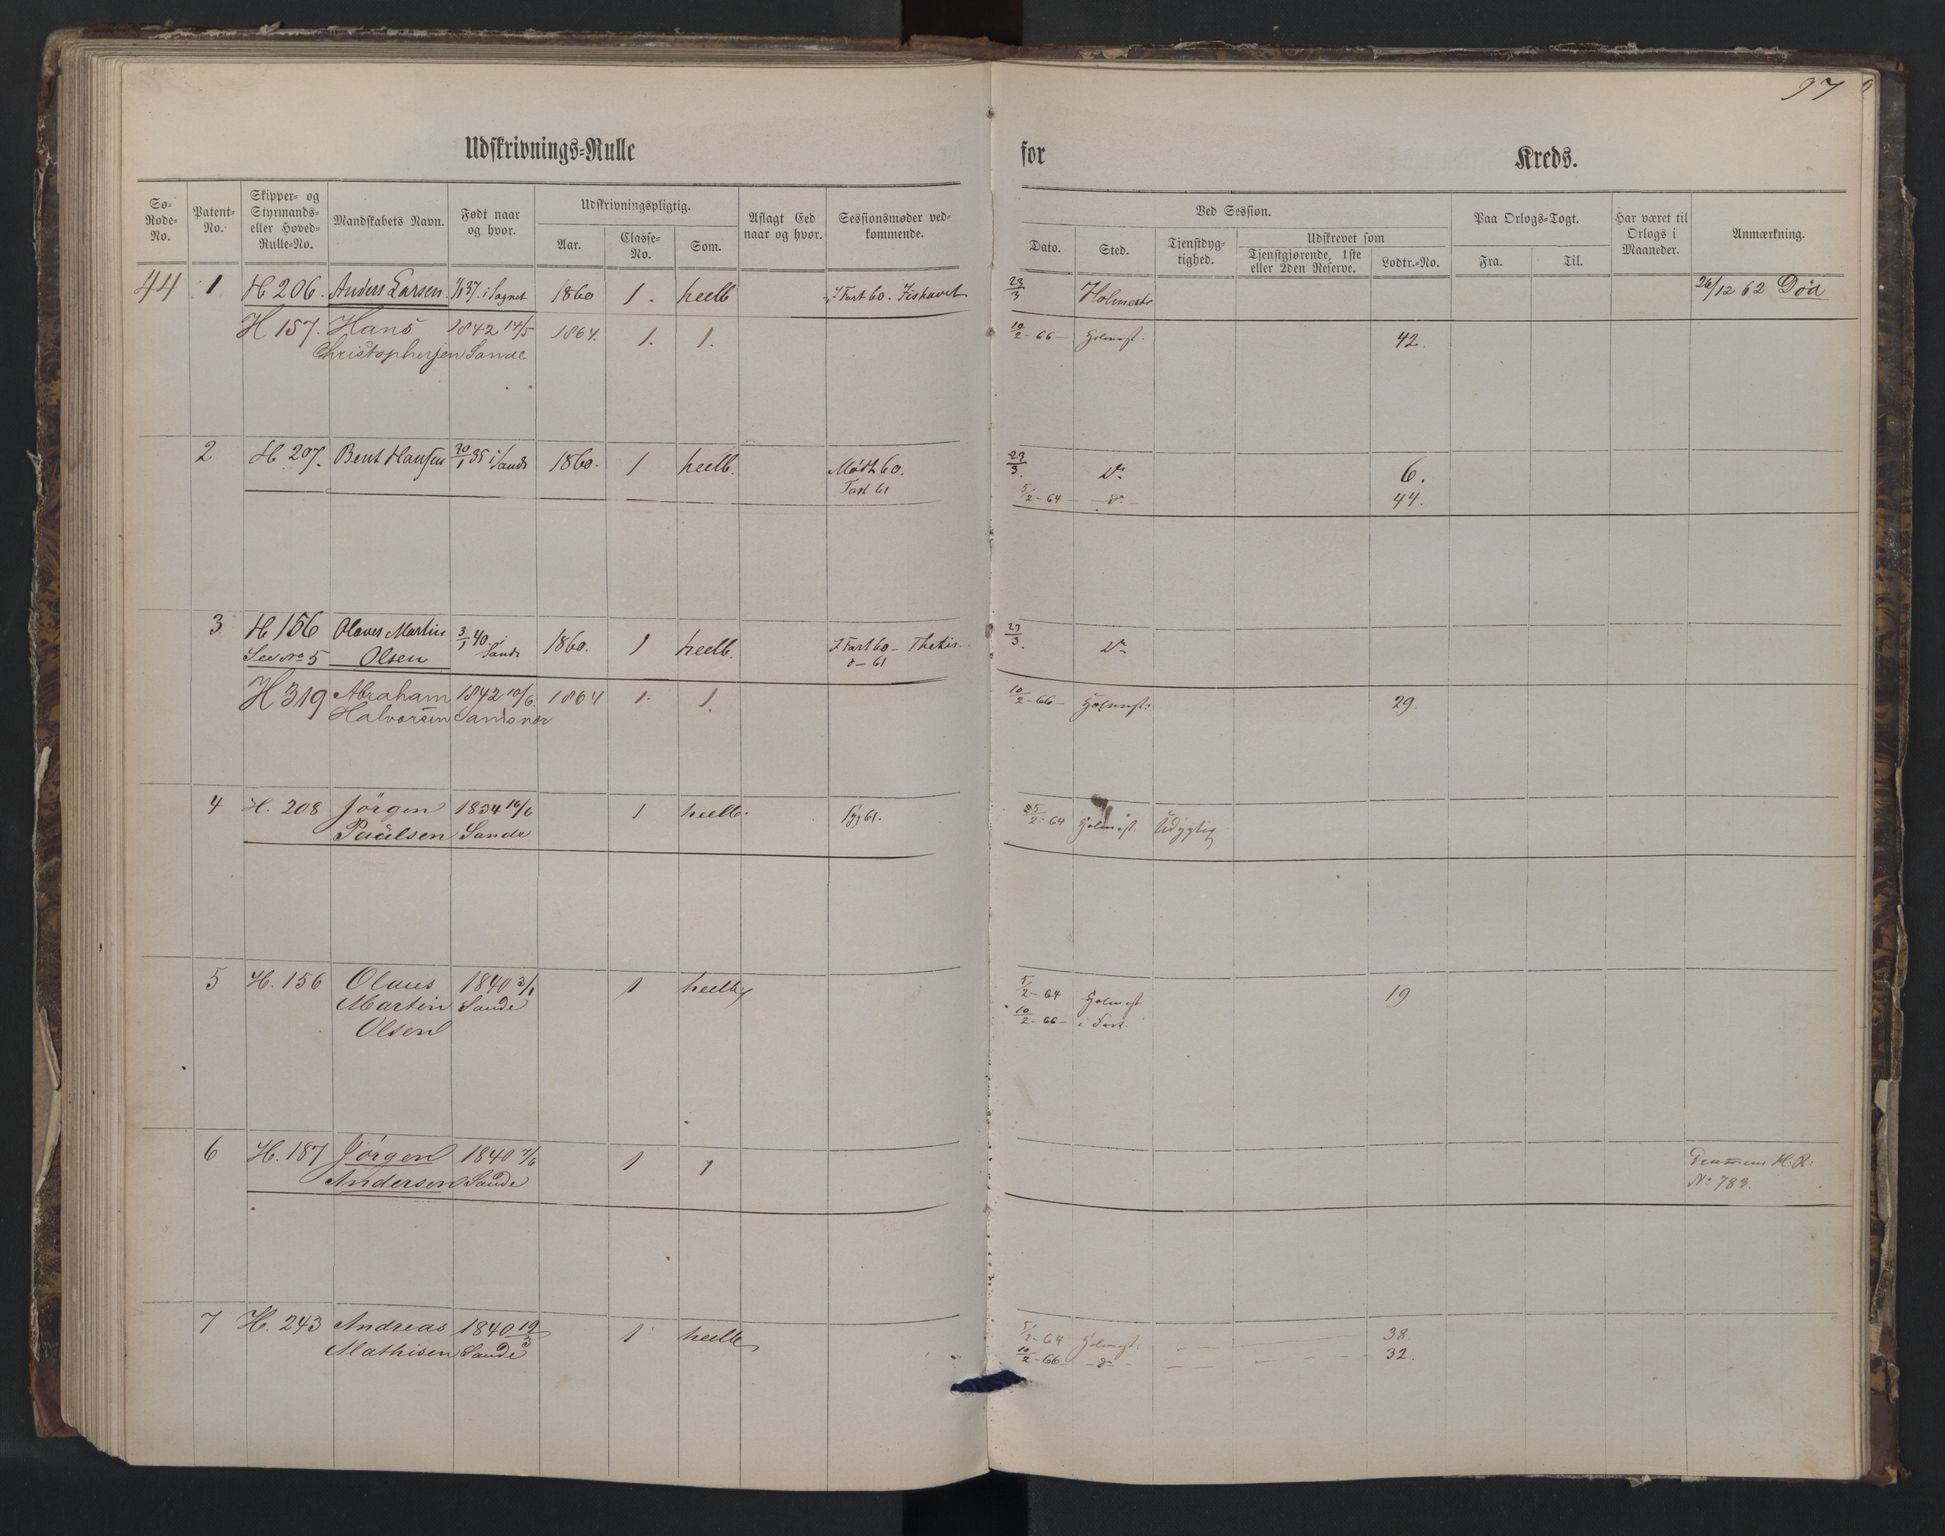 97
Udskrivnings-Rulle for Kreds.
Sø-Rode-No.
Patent-No.
Skipper- og Styrmands- eller Hoved-Rulle-No.
Mandskabets Navn.
Født naar og hvor.
Udskrivningspligtig.
Aar.
Classe-No.
Som.
Aflagt Eed naar og hvor.
Sessionsmøder vedkommende.
Ved Session.
Dato.
Sted.
Tjenstdygtighed.
Udskrevet som
Tjenstgjørende, 1ste eller 2den Reserve.
Lodtr.-No.
Paa Orlogs-Togt.
Fra.
Til.
Har været til Orlogs i Maaneder.
Anmærkning.
44 1 H 206. Anders Larsen 37. i 1860 1. heelb I Fart 60. 23/3 Holmestr 26/12 62 Død
H 157. Hans 1842 14/5 1864. 1. 1. 10/2-66- Holmest. 42.
Christophersen Sande
2 H 207. Bent Hansen 35 i Sande 1860. 1 heelb. Mødt 60. 23/3. Do 6.
Fart 61 5/2-64 - do - 44.
3 H 156 Olaves Martin 3/1 40 i 1860. 1 heelb. I Fart 60 - Thetis 23/3. Do
See No 5 Olsen Sande o - 61
H 319 Abraham 1842 10/6. 1864 1. 1. 10/2-66- Holmest: 29.
Halvorsen Sandsvær
4 H. 208 Jörgen 1834 16/6 1 heelb. 61. 25/2-64 Holmest. Udygtig
Paülsen Sande
5 H. 156 Olaus 1840 3/1 1 heelb 5/2-64 Holmest. 19
Martin Sande 10/2-66- i Fart.
Olsen
6 H. 187 Jörgen 1840 7/6 1 1 H: R:
Andersen Sande No 783.
7 H. 243 Andreas 1840 19/3 1 heelb 5/2-64 Holmest: 38.
Mathisen Sande 10/2-66- - do - 32.